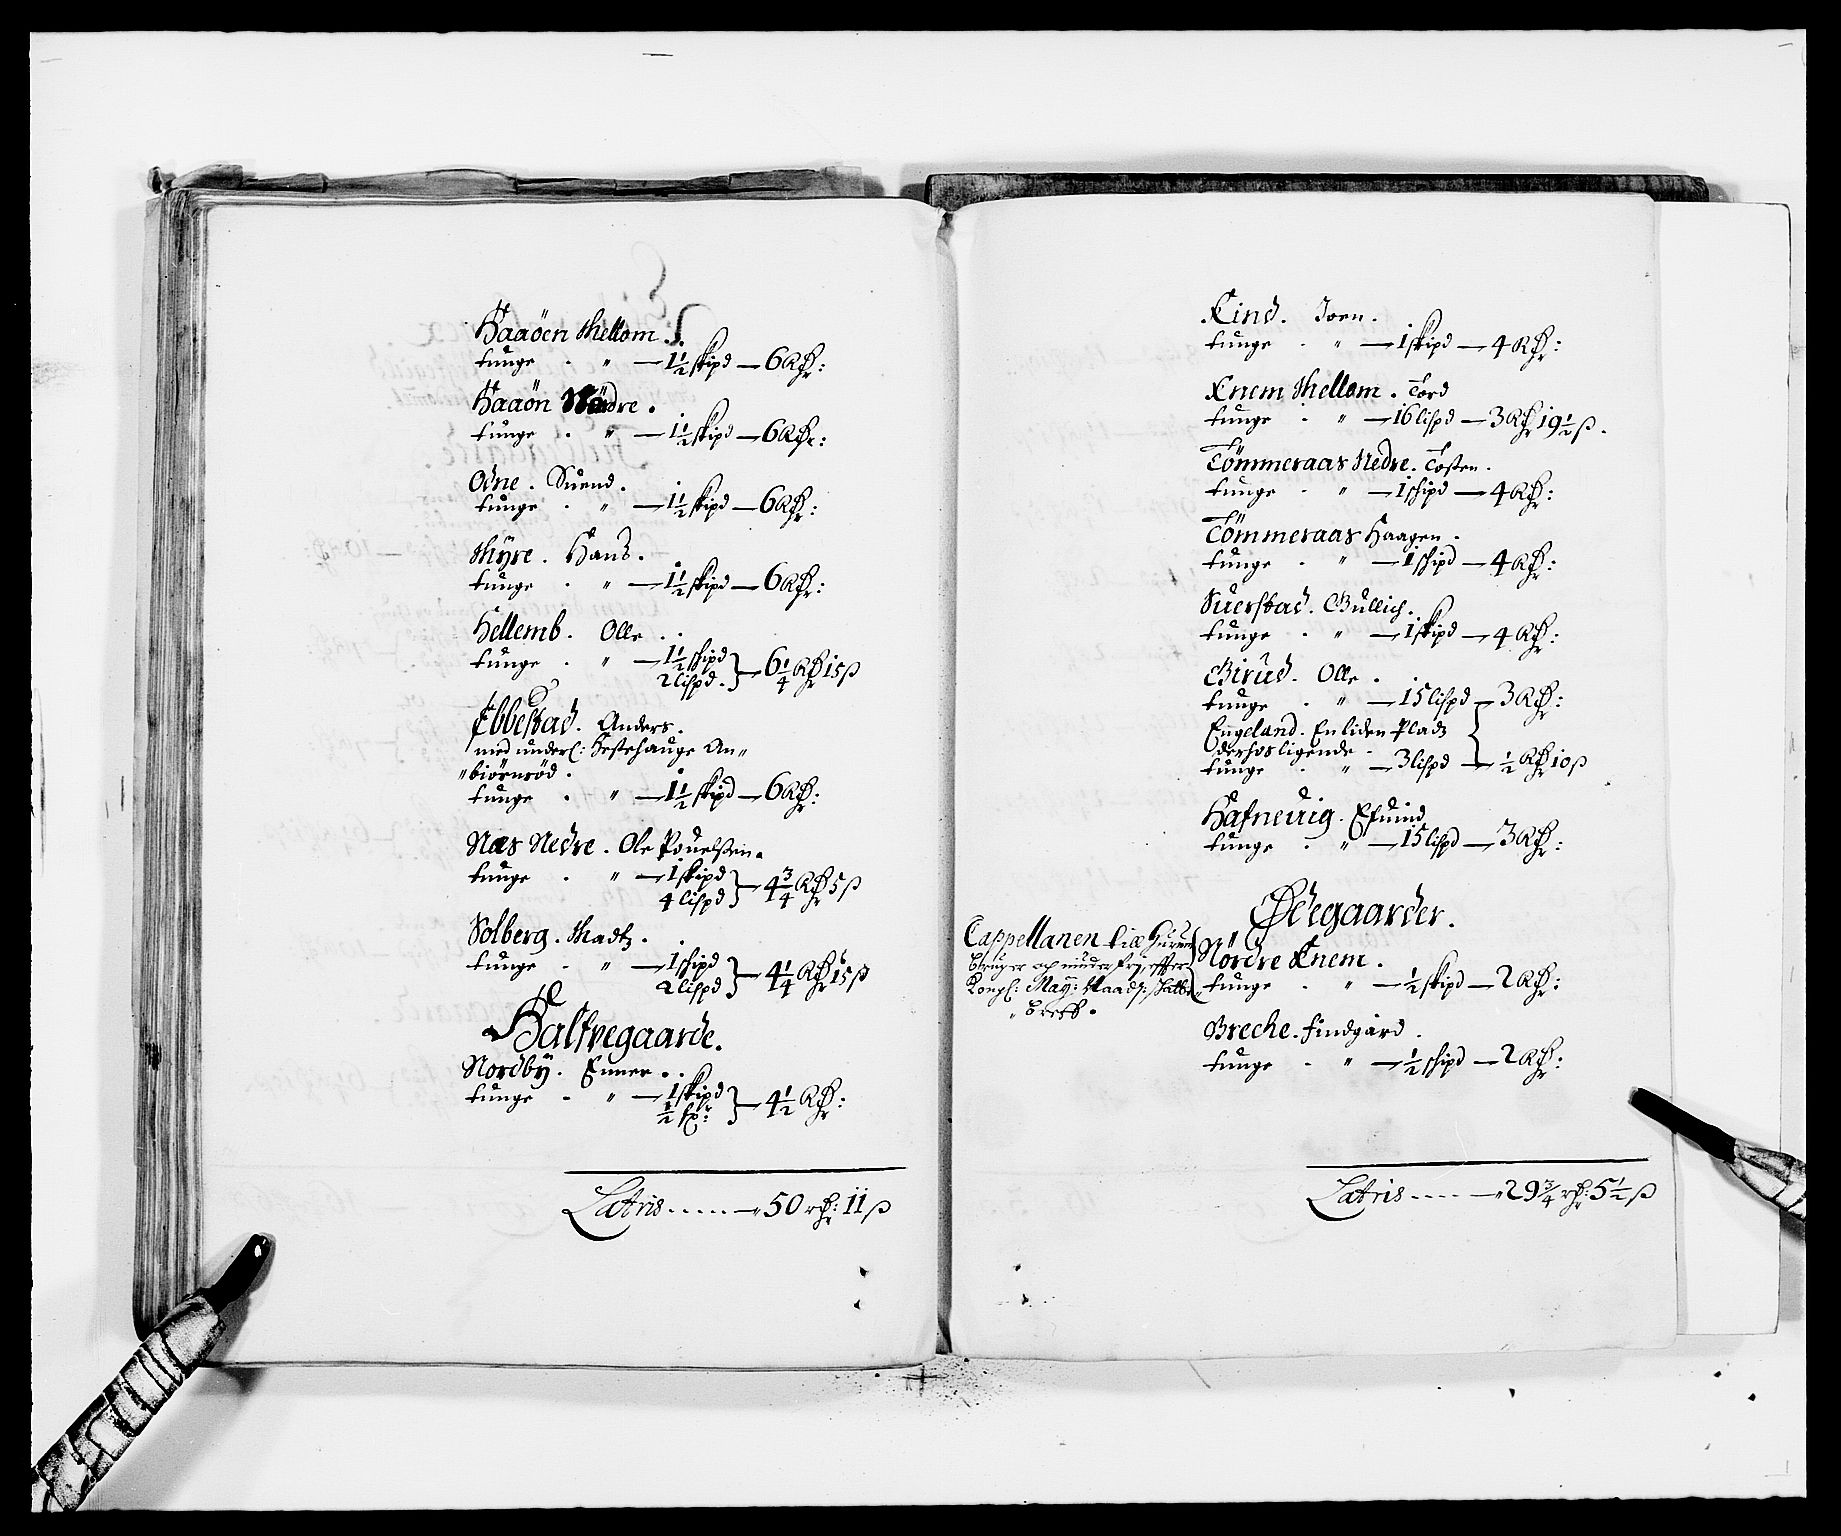 Haaöen Mellom.
tunge . " — 1½ skipd — 6 Rdr:
Haaön Nördre.
tunge . " — 1½ skipd — 6 Rdr:
Odne. Suend.
tunge . " — 1½ skipd — 6 Rdr:
Myre. Hans.
tunge . " — 1½ skipd — 6 Rdr:
Hellemb. Olle.
tunge . " — 1½ skipd
2 lispd. } — 6¼ Rdr 15 ß
Ebbestad. Anders.
med underl: Hestehauge An„
„biörnröd.
tunge . " — 1½ skipd — 6 Rdr:
Næs Nedre. Ole Pouelssen.
tunge . " — 1 skipd
4 lispd } — 4¾ Rdr 5 ß
Solberg. Madtz.
tunge . " — 1 skipd
2 lispd } — 4¼ Rdr 15 ß
Halfvegaarde.
Nordby. Enner.
tunge . " — 1 skipd
½ } — 4½ Rdr:
Latris ..... — 50 rdr: 11 ß
Lind. Joen.
tunge . " — 1 skipd — 4 Rdr:
Knem Mellom. Tord
tunge . " — 16 lispd — 3 Rdr 19½ ß.
Tömmeraas Nedre. Tosten.
tunge . " — 1 skipd — 4 Rdr:
Tömmeraas Haagen.
tunge . " — 1 skipd — 4 Rdr:
Suerstad. Gullich.
tunge . " — 1 skipd — 4 Rdr:
Girud. Olle.
tunge . " — 15 lispd — 3 Rdr:
Engeland. En liden Pladtz
derhos ligende.
tunge . " — 3 lispd — ½ Rdr 10 ß
Hafneuig. Efuind
tunge . " — 15 lispd — 3 Rdr:
Ødegaarder.
Cappellanen till Hurum
bruger och niuder fry, effter
Kongl: May: Naadz:
breff.
Nördre Knem.
tunge . " — ½ skipd — 2 Rdr:
Breche. Findgård.
tunge . " — ½ skipd — 2 Rdr:
Latris .... — 29¾ rdr: 5½ ß